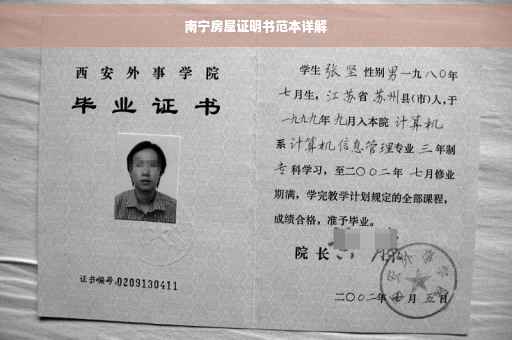 南宁房屋证明书范本详解
西安外事学院
毕业证书
证书编号:0209130411
学生 张坚 性别 男 一九八〇年
七月生，江苏省 苏州县(市)人,于
一九九九年 九月入本院 计算机
系 计算机信息管理专业 三 年制
专科学习，至二〇〇二年 七月修业
期满，学完教学计划规定的全部课程，
成绩合格，准予毕业。
院长
二〇〇二年 月 五日